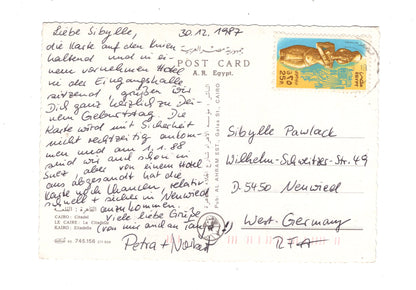 Liebe Sibylle, 30.12.1987
die Karte auf den Knien
haltend und in ei-
nem vornehmen Hotel
in der Eingangshalle
sitzend, grüßen wir
Dich ganz herzlich zu Dei-
nem Geburtstag. Die
Karte wird mit Sicherheit
nicht rechtzeitig ankom-
men und am 1.1.88
sind wir auch schon in
Suez aber von einem Hotel
aus abgesandt hat die
Karte noch Chancen, relativ
schnell + sicher in Neuwied
anzukommen.
Viele liebe Grüße
(von mir und an Tanja)
Petra + Norbert
جمهورية مصر العربية
POST CARD
A. R. Egypt.
CAIRO : Citadel
LE CAIRE : La Citadelle
KAIRO : Zitadelle
745.156
Pub: AL AHRAM EST. CAIRO
Sibylle Pawlack
Wilhelm-Schweitzer-Str. 49
D-5450 Neuwied
West-Germany
R.F.A